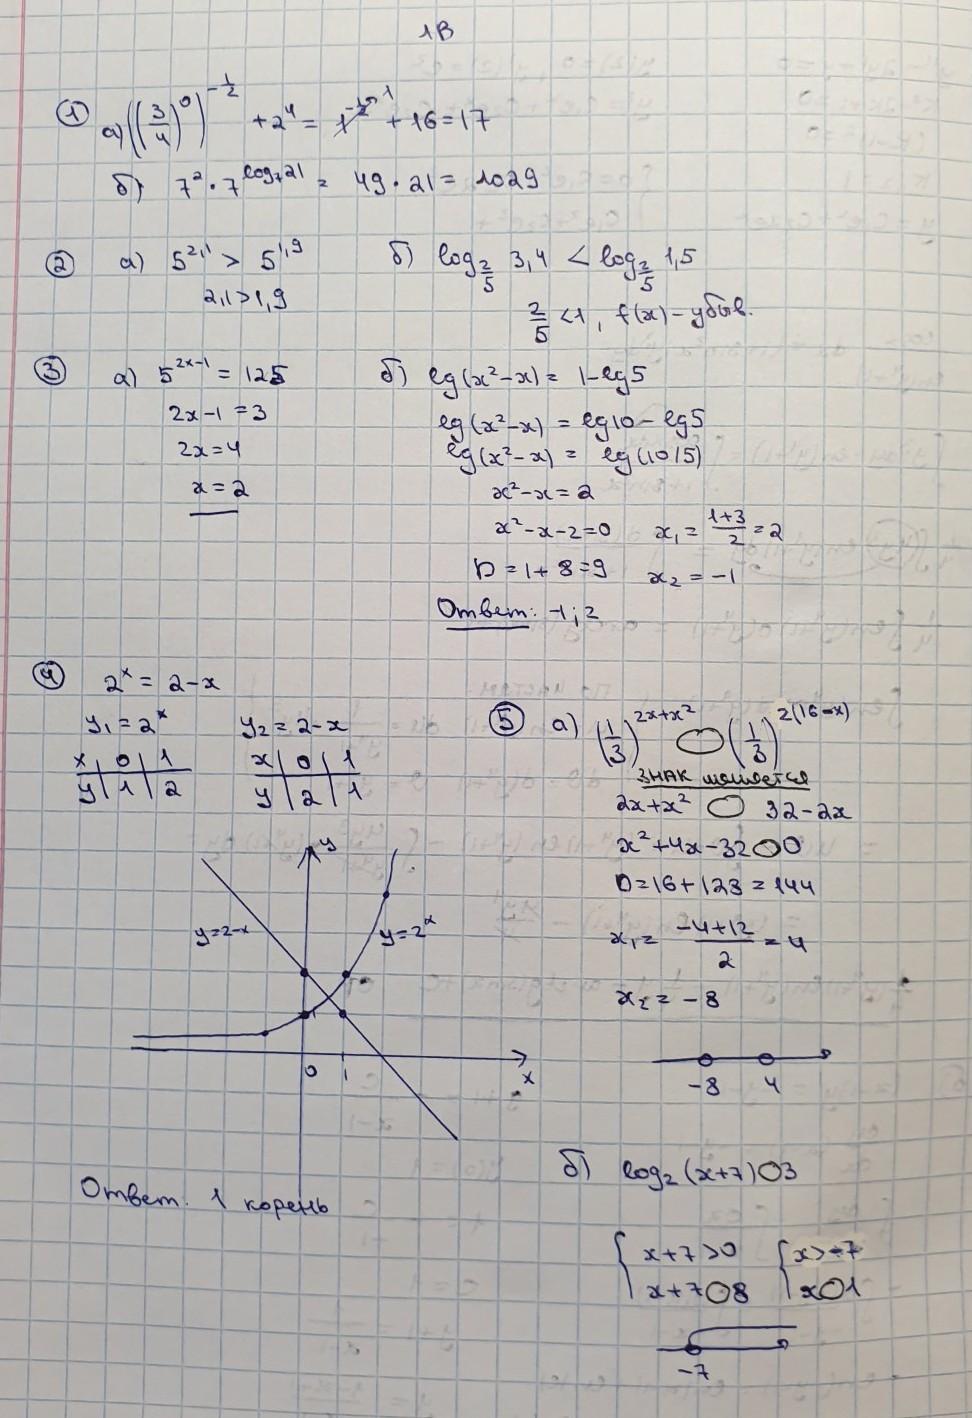 1В
① а) ((3/4)^0)^(-1/2) + 2^4 = 1^(-1/2) 1 + 16 = 17
б) 7^2 · 7^(log_7 21) = 49 · 21 = 1029
② а) 5^(2,1) > 5^(1,9)
2,1 > 1,9
б) log_(2/5) 3,4 < log_(2/5) 1,5
2/5 < 1, f(x) – убыв.
③ а) 5^(2x-1) = 125
2x-1 = 3
2x = 4
x = 2
б) lg(x²-x) = 1-lg5
lg(x²-x) = lg10 - lg5
lg(x²-x) = lg(10/5)
x²-x = 2
x²-x-2=0
D = 1+8=9
x₁ = (1+3)/2 = 2
x₂ = -1
Ответ: -1; 2
④ 2^x = 2-x
y₁ = 2^x
x | 0 | 1
y | 1 | 2
y₂ = 2-x
x | 0 | 1
y | 2 | 1
y
y=2-x
y=2^x
1
0 1
x
Ответ. 1 корень
⑤ а) (1/3)^(2x+x²) ◯ (1/3)^(2(16-x))
знак меняется
2x+x² ◯ 32-2x
x²+4x-32 ◯ 0
D=16+128=144
x₁ = (-4+12)/2 = 4
x₂ = -8
-8 4
б) log₂(x+7) ◯ 3
{ x+7>0 { x>-7
{ x+7 ◯ 8 { x ◯ 1
-7